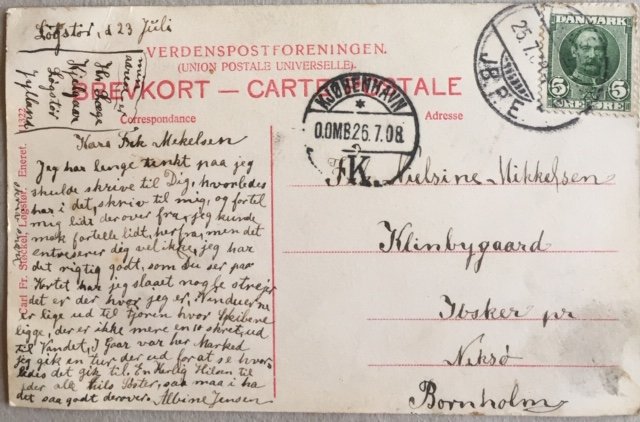 Løgstør, d 23 Juli
min
adresse er
Hr. Læge
Kjelgaar
Løgstør
Jylland
VERDENSPOSTFORENINGEN.
(UNION POSTALE UNIVERSELLE).
BREVKORT — CARTE POSTALE
Correspondance
Adresse
DANMARK
5 5
ØRE ØRE
KJØBENHAVN
OMB 26.7.08
K.
25.7.
J.B.P.E.
Carl Fr. Støckel Løgstør. Eneret. 1322
skriv snart
Kære Frk Mikelsen
Jeg har længe tenkt paa jeg
skulde skrive til Dig, hvorledes
har i det, skriv til mig, og fortel
mig lidt derover fra, jeg kunde
nok fortelle lidt, herfra, men det
entreserer dig vel ikke, jeg har
det rigtig godt, som du ser paa
Kortet har jeg slaaet nogle streger
det er der hvor jeg er, Vinduerne
er lige ud til Fjorden hvor Skibene
ligge, der er ikke mere en 10 skret, ud
til Vandet, I Gaar var her Marked
jeg gik en tur der ud for at se hvor-
ledis det gik til. En Kerlig Hilsen til
der alle hils Søster, saa maa i ha
det saa godt derover. Albine Jensen
Frk Nielsine Mikkelsen
Klinbygaard
Ibsker pr
Neksø
Bornholm